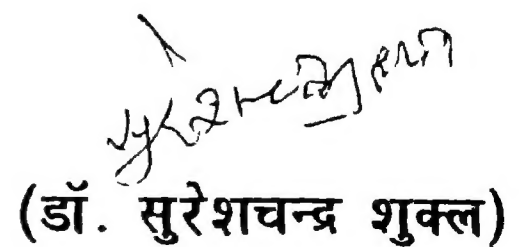 (डॉ. सुरेशचन्द्र शुक्ल)